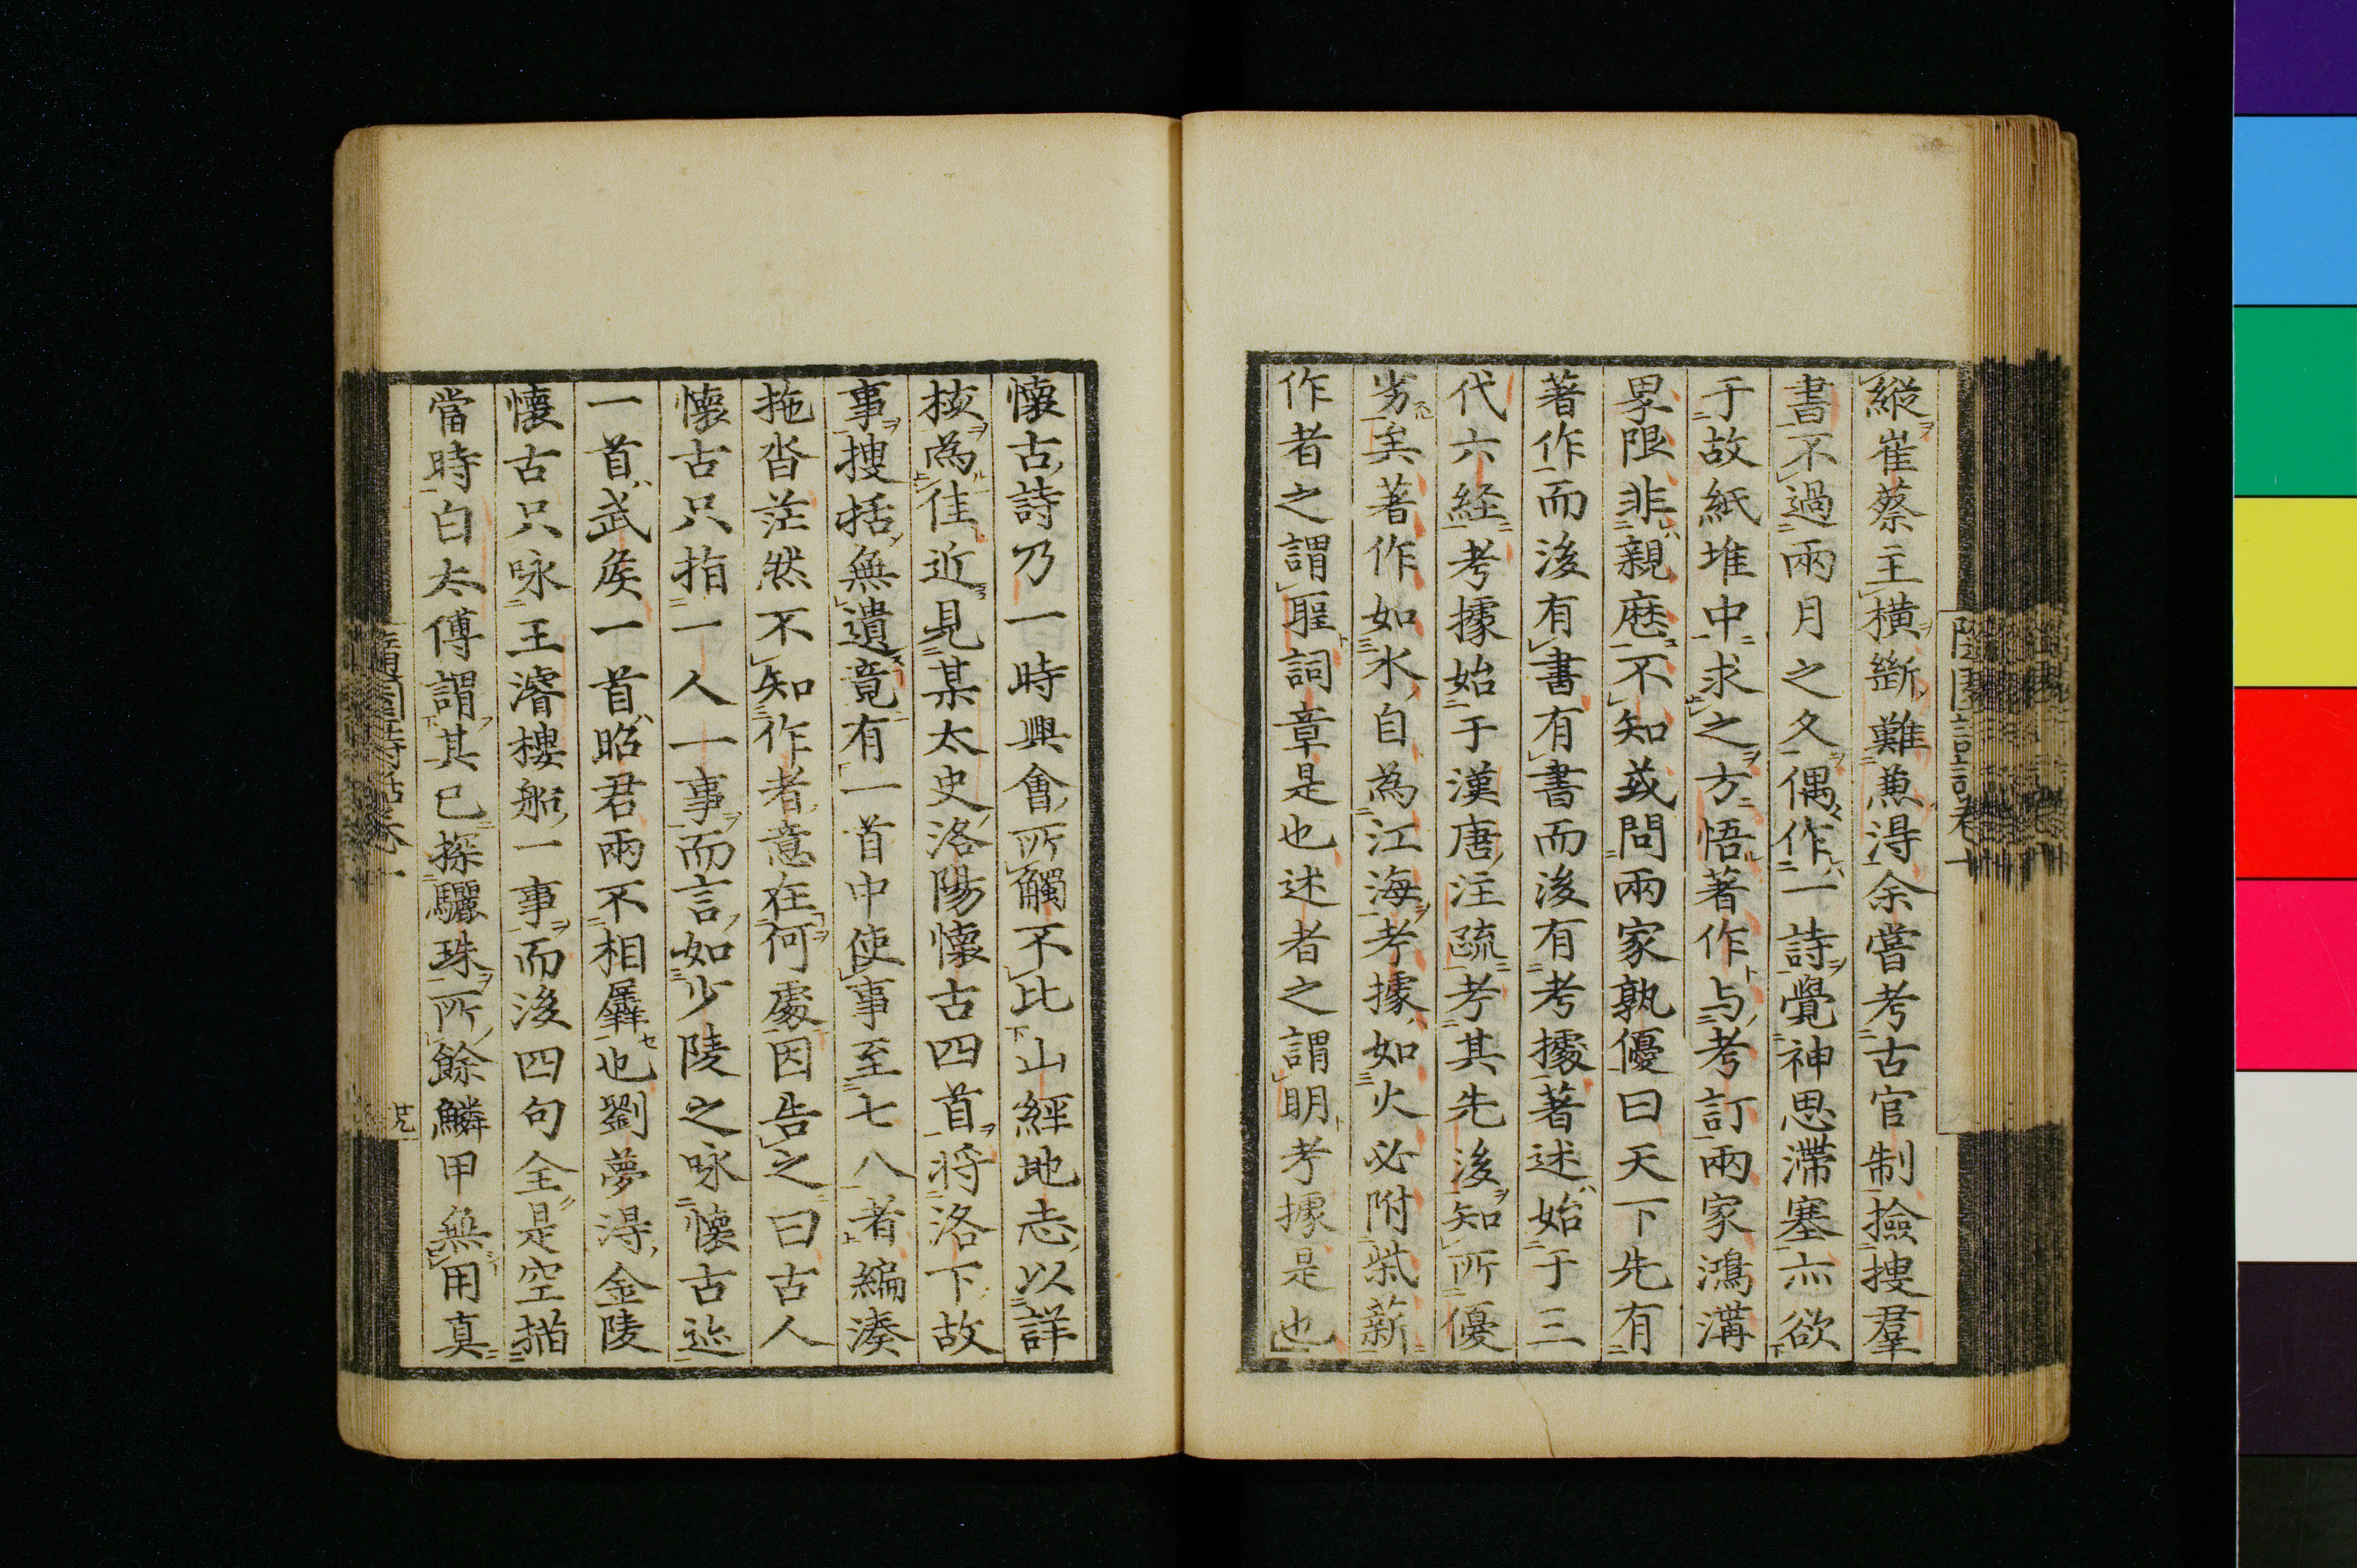 縱崔蔡主橫斷難蒹得余嘗考古官制撿搜羣
書不過兩月之久偶作一詩覺神思滯塞亦欲
于故紙堆中求之方悟著作与考訂兩家鴻溝
界限非親歷不知或問兩家孰優曰天下先有
著作而後有書有書而後有考據著述始于三
代六経考據始于漢唐注疏考其先後知所優
劣矣著作如水自為江海考據如火必附柴薪
作者之謂聖詞章是也述者之謂明考據是也
懷古詩乃一時興會所觸不比山經地志以詳
核為佳近見某太史洛陽懷古四首將洛下故
事搜括無遺竟有一首中使事至七八者編湊
拖沓茫然不知作者意在何處因告之曰古人
懷古只指一人一事而言如少陵之咏懷古迹
一首武矦一首昭君兩不相羼也劉夢得金陵
懷古只咏王濬樓船一事而後四句全是空描
當時白太傅謂其已探驪珠所餘鱗甲無用真
隨園詩話卷一